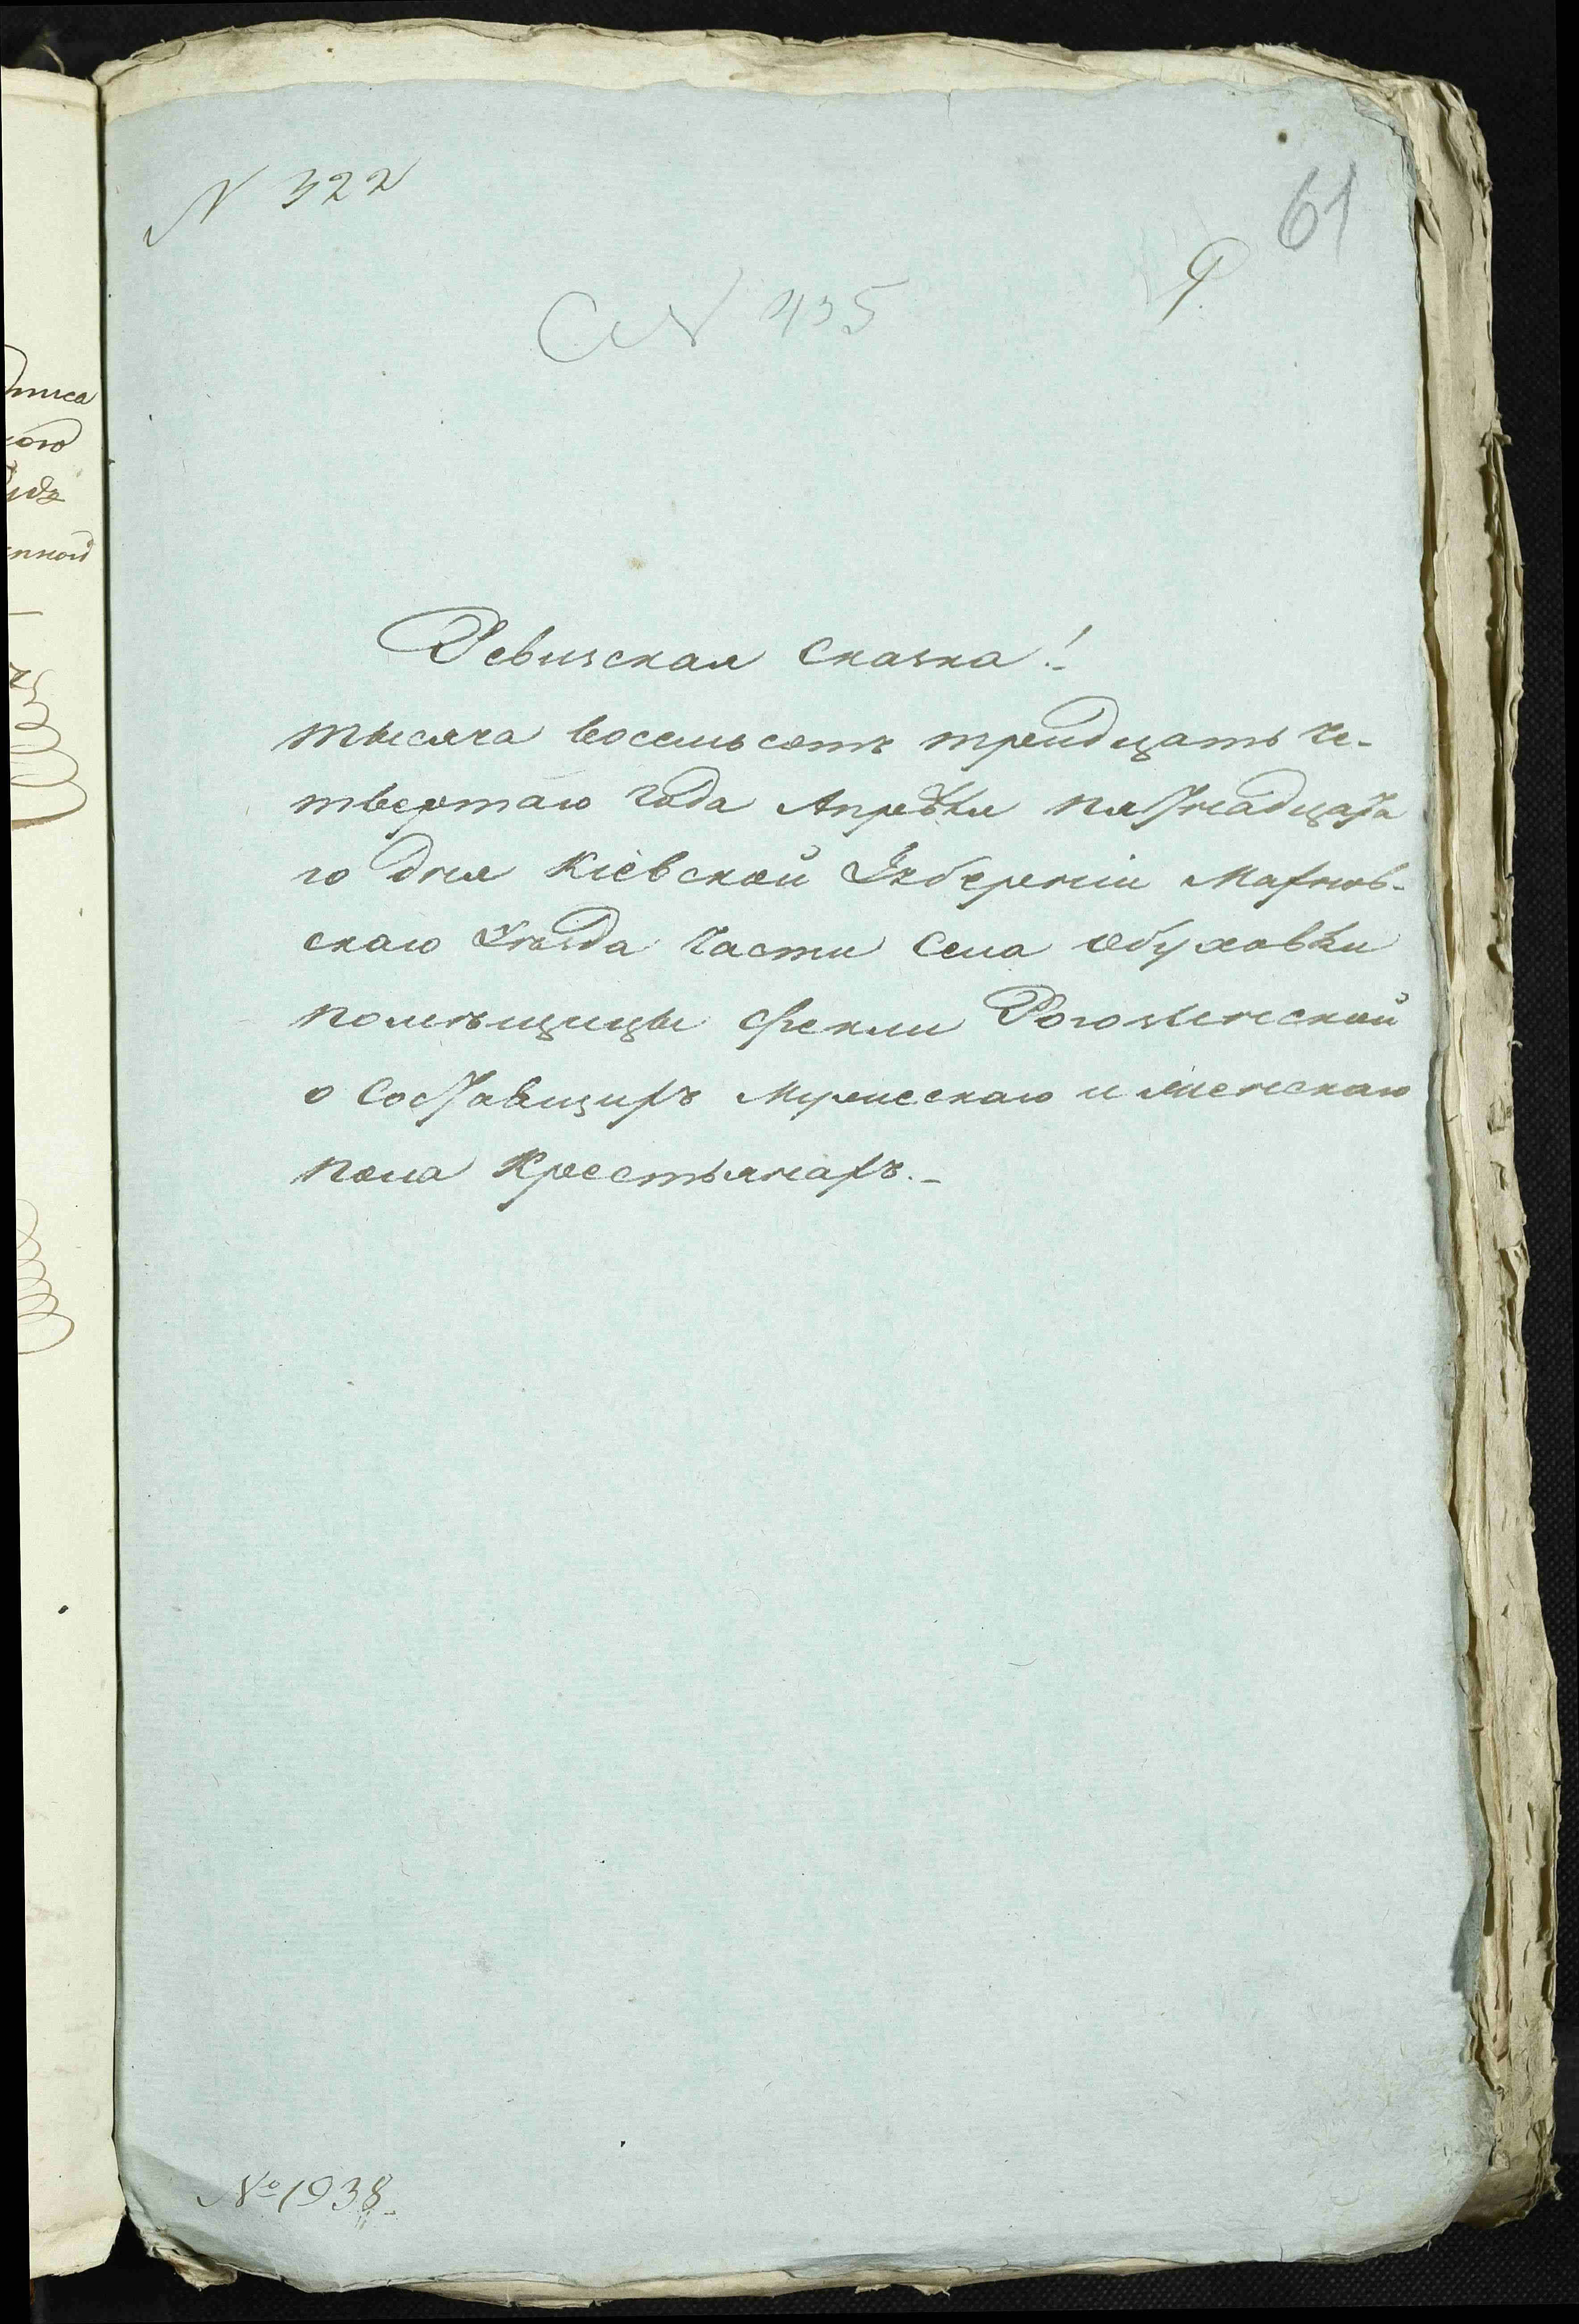 N 322
61
9
N 435
Ревизская сказка!
тысяча восемьсотъ тридцать че-
твертаго года Апрѣля пятнадцата
го дня Кіевской Губерніи Махнов-
скаго уѣзда части села Обуховки
помѣщицы Феклы Рогозинской
о состаящихъ мужескаго и женскаго
пола крестьянахъ.-
№ 1938.